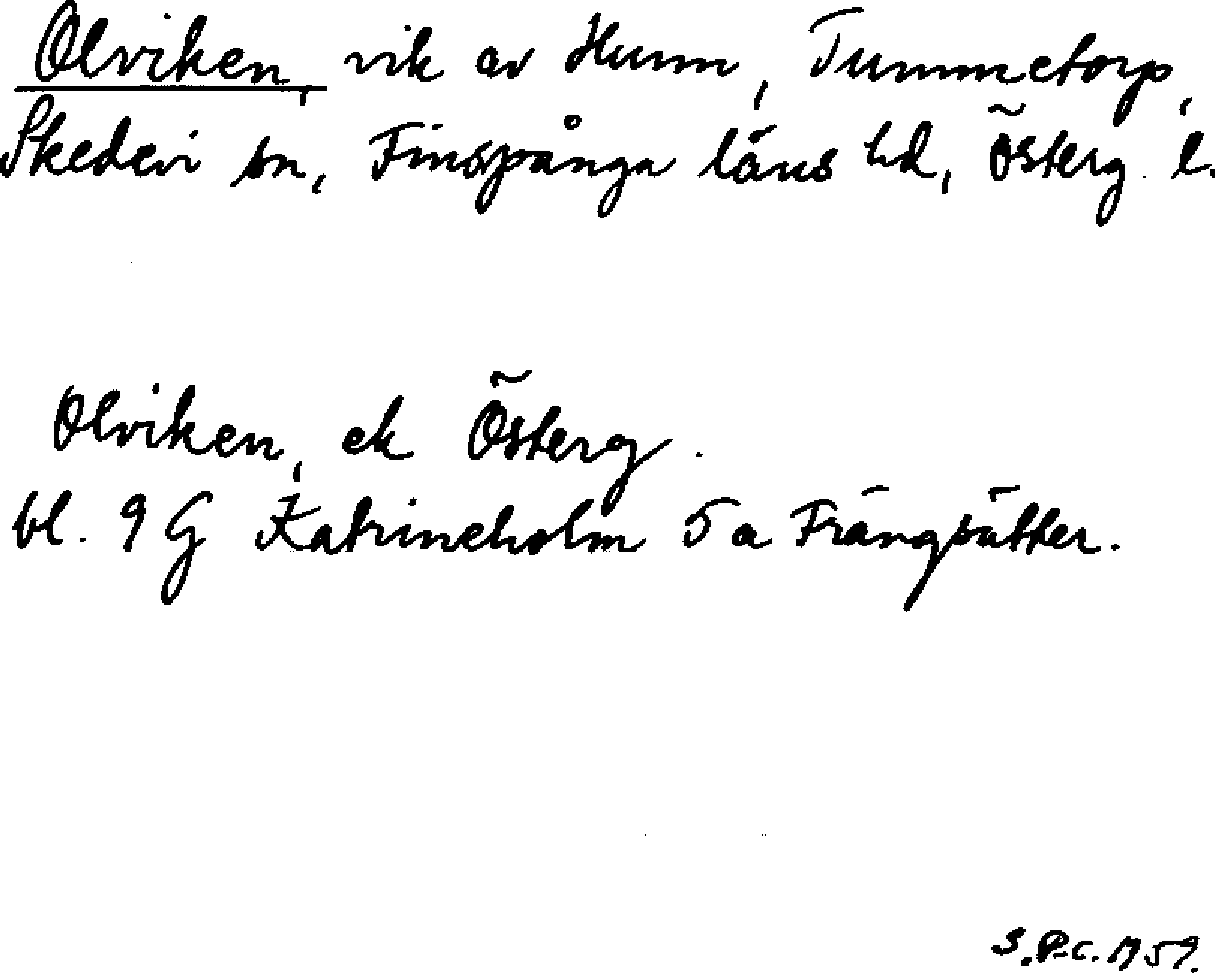 Olviken, vik av Hunn, Tummetorp,
Skedevi sn, Finspånga läns hd, Österg. l.
Olviken, ek Österg.
bl. 9 G Katrineholm 5 a Frängsätter.
S.P-c. 1959.